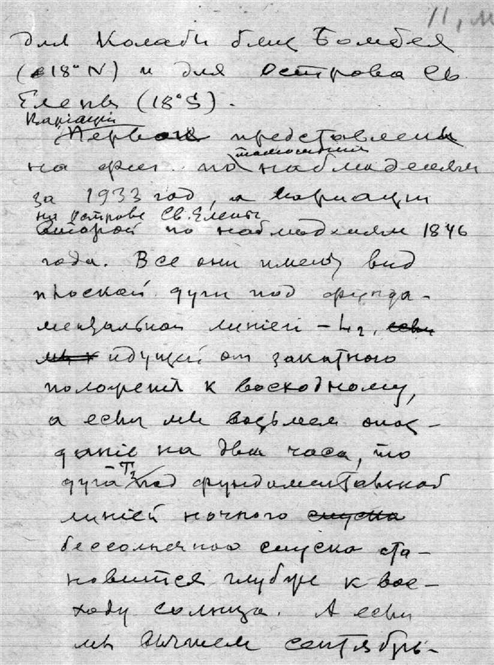 для Колабы близ Бомбея
(18° N) и для Острова Св
Елены (18° S).
Вариации
Первая представлены
на фиг. по наблюдениям
за 1933 год, а вариации
на острове Св. Елены
второй по наблюдениям 1846
года. Все они имеют вид
плоской дуги под фунда-
ментальной линией – L2,
идущей от закатного
положения к восходному,
а если мы возьмем опоз-
дание на два часа, то
дуга T2 под фундаментальной
линией ночного спуска
бессолнечного спуска ста-
новится глубже к вос-
ходу солнца. А если
мы вычтем сентябрь-